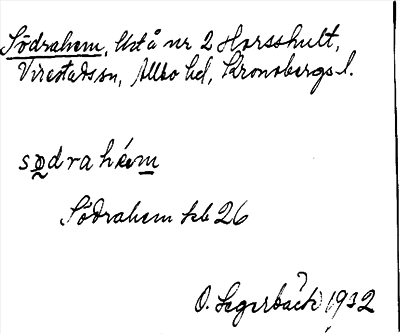 Södrahem, Urå nr 2 Horsshult,
Virestads sn, Allbo hd, Kronobergs l.
sødrahém
Södrahem kb 26
O. Segerbäck 1932